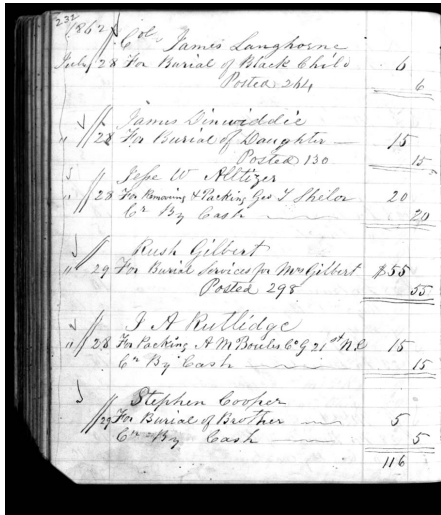 232
1862
Col James Langhorne
July 28 For Burial of Black Child 6
Posted 244 6
James Dinwiddie
" 28 For Burial of Daughter 15
Posted 130 15
Jesse W Altizer
" 28 For Removing & Packing Geo T 20
Cr By Cash 20
Rush Gilbert
" 29 For Burial Services for Mrs Gilbert $55
Posted 298 55
J A Rutlidge
" 28 For Packing A M Boules Co G 21st N C 15
Cr By Cash 15
Stephen Cooper
29 For Burial of Brother 5
Cr By Cash 5
116